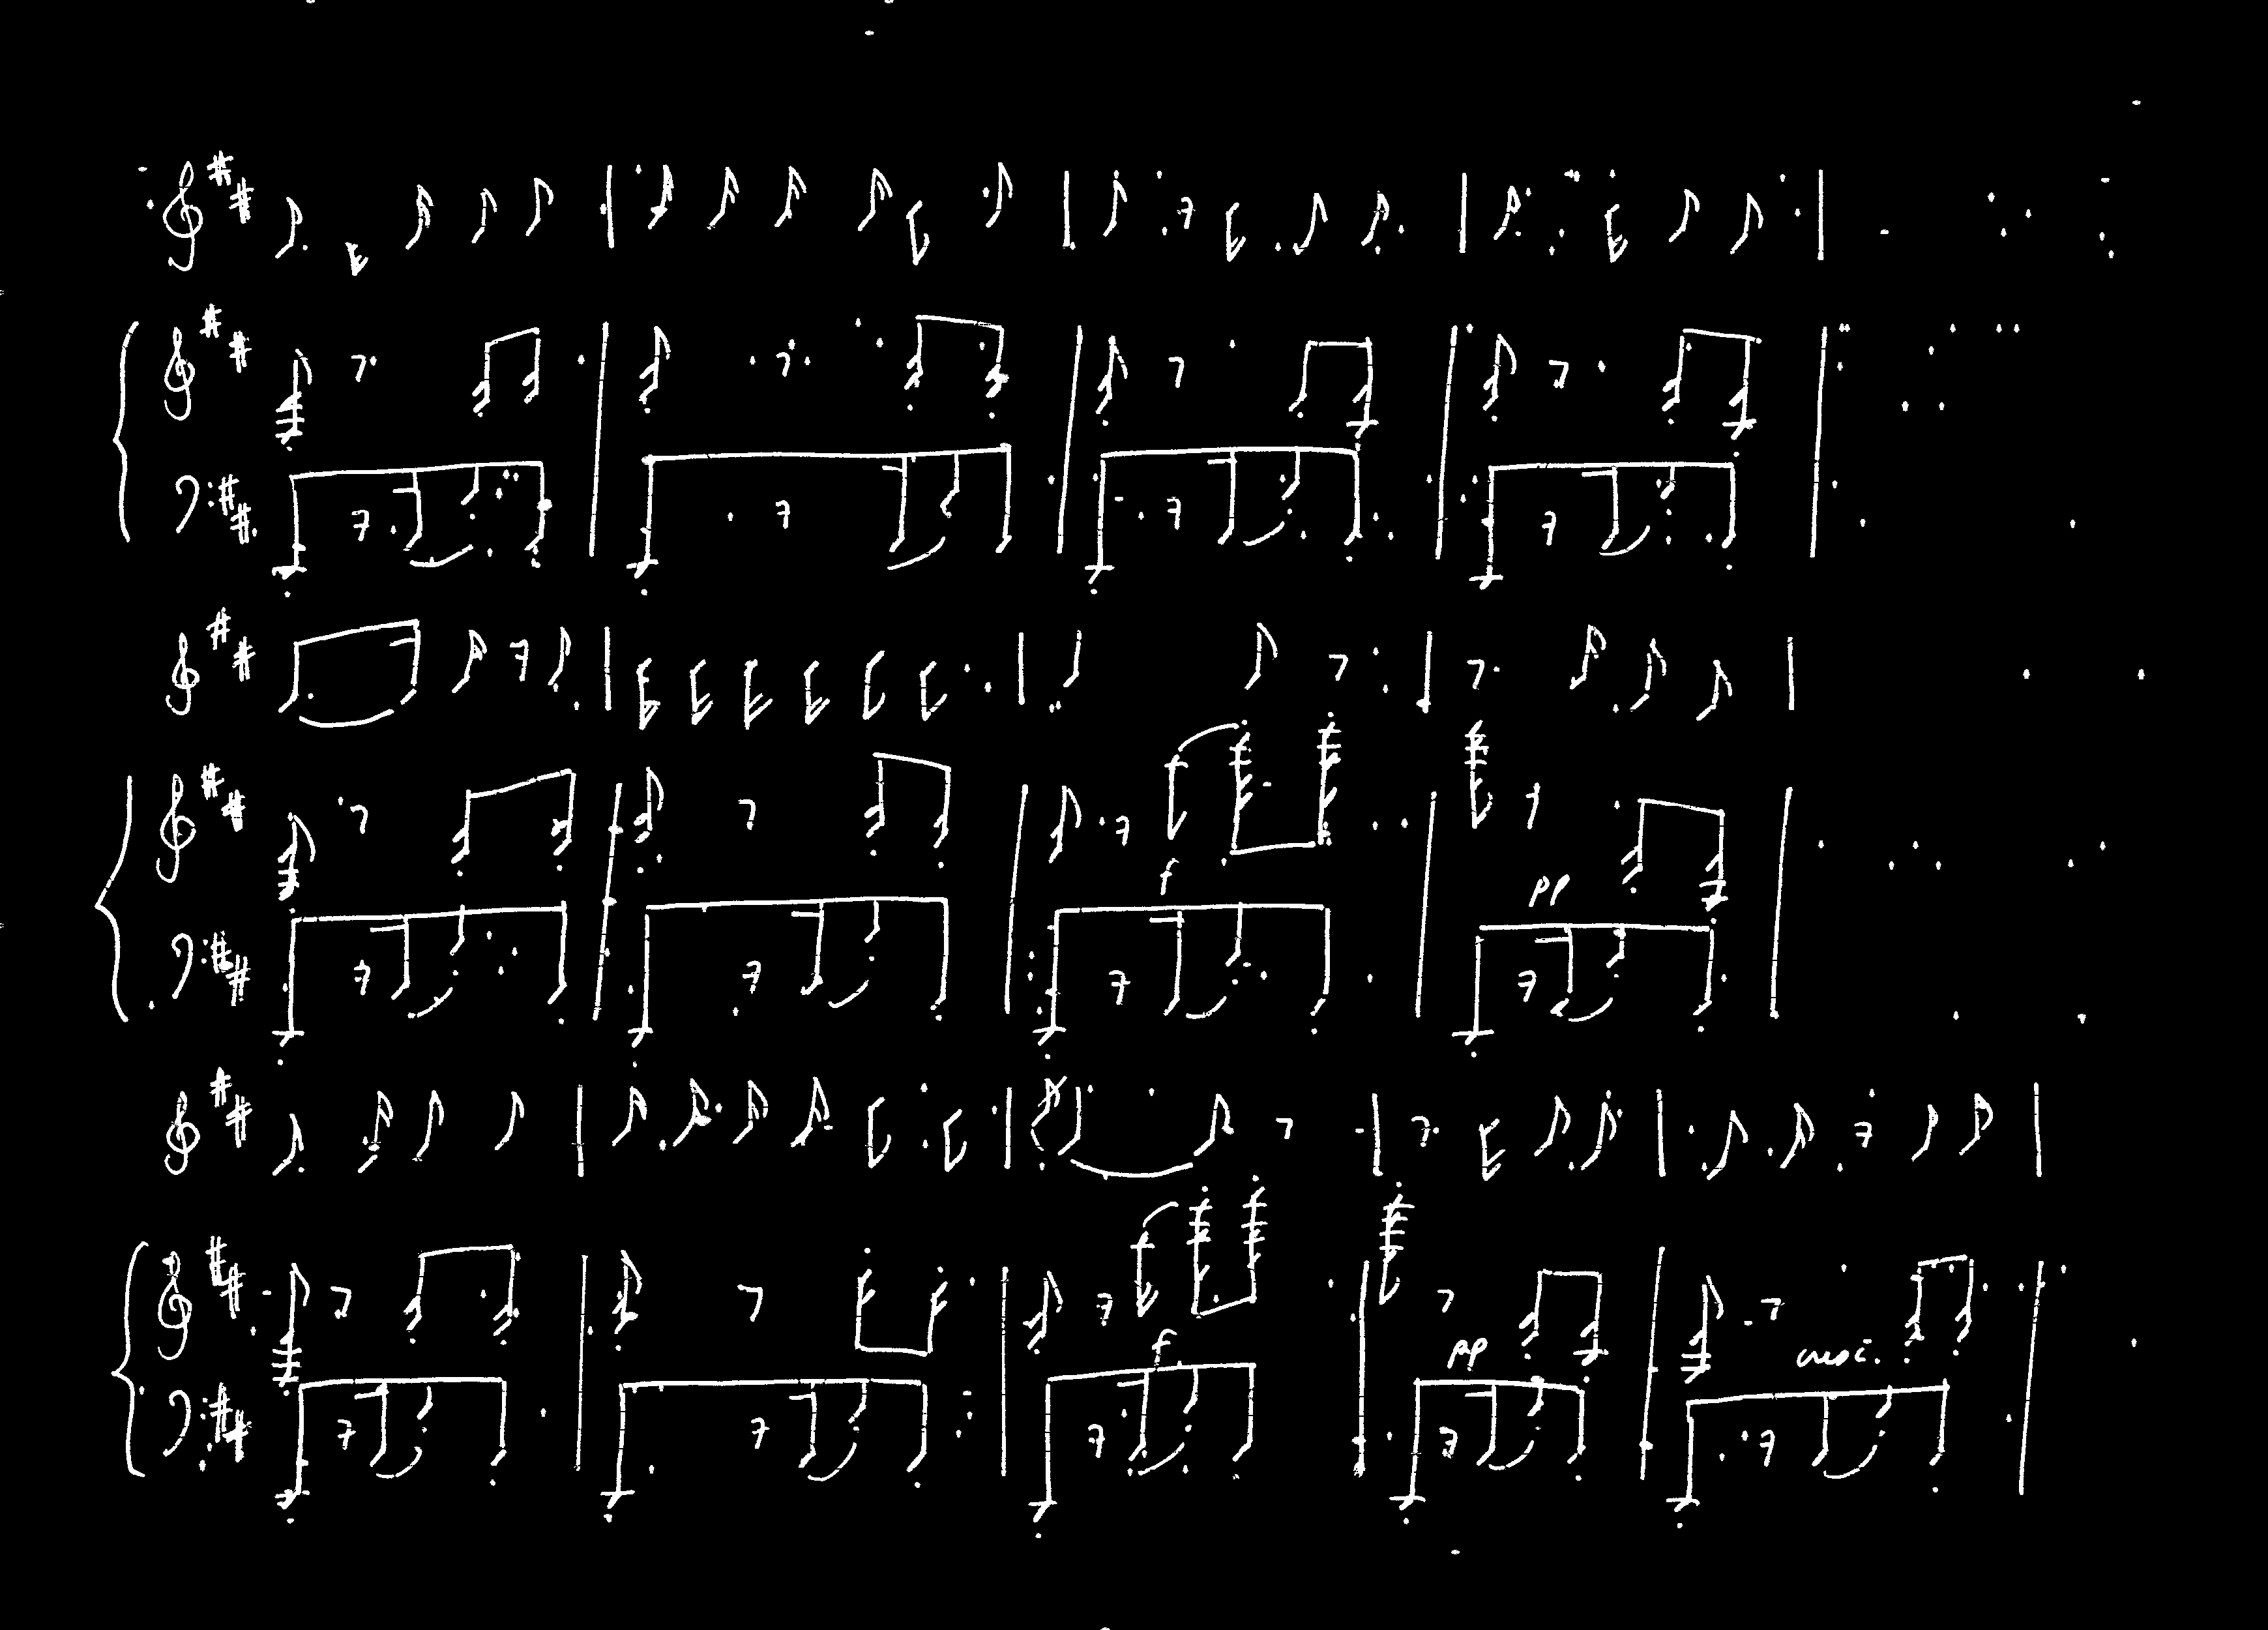 f
pp
f
pp
cresc.